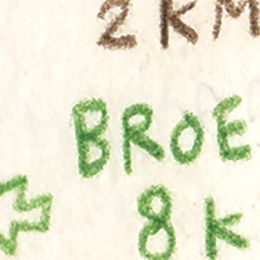 2 KM
BROE
8 K